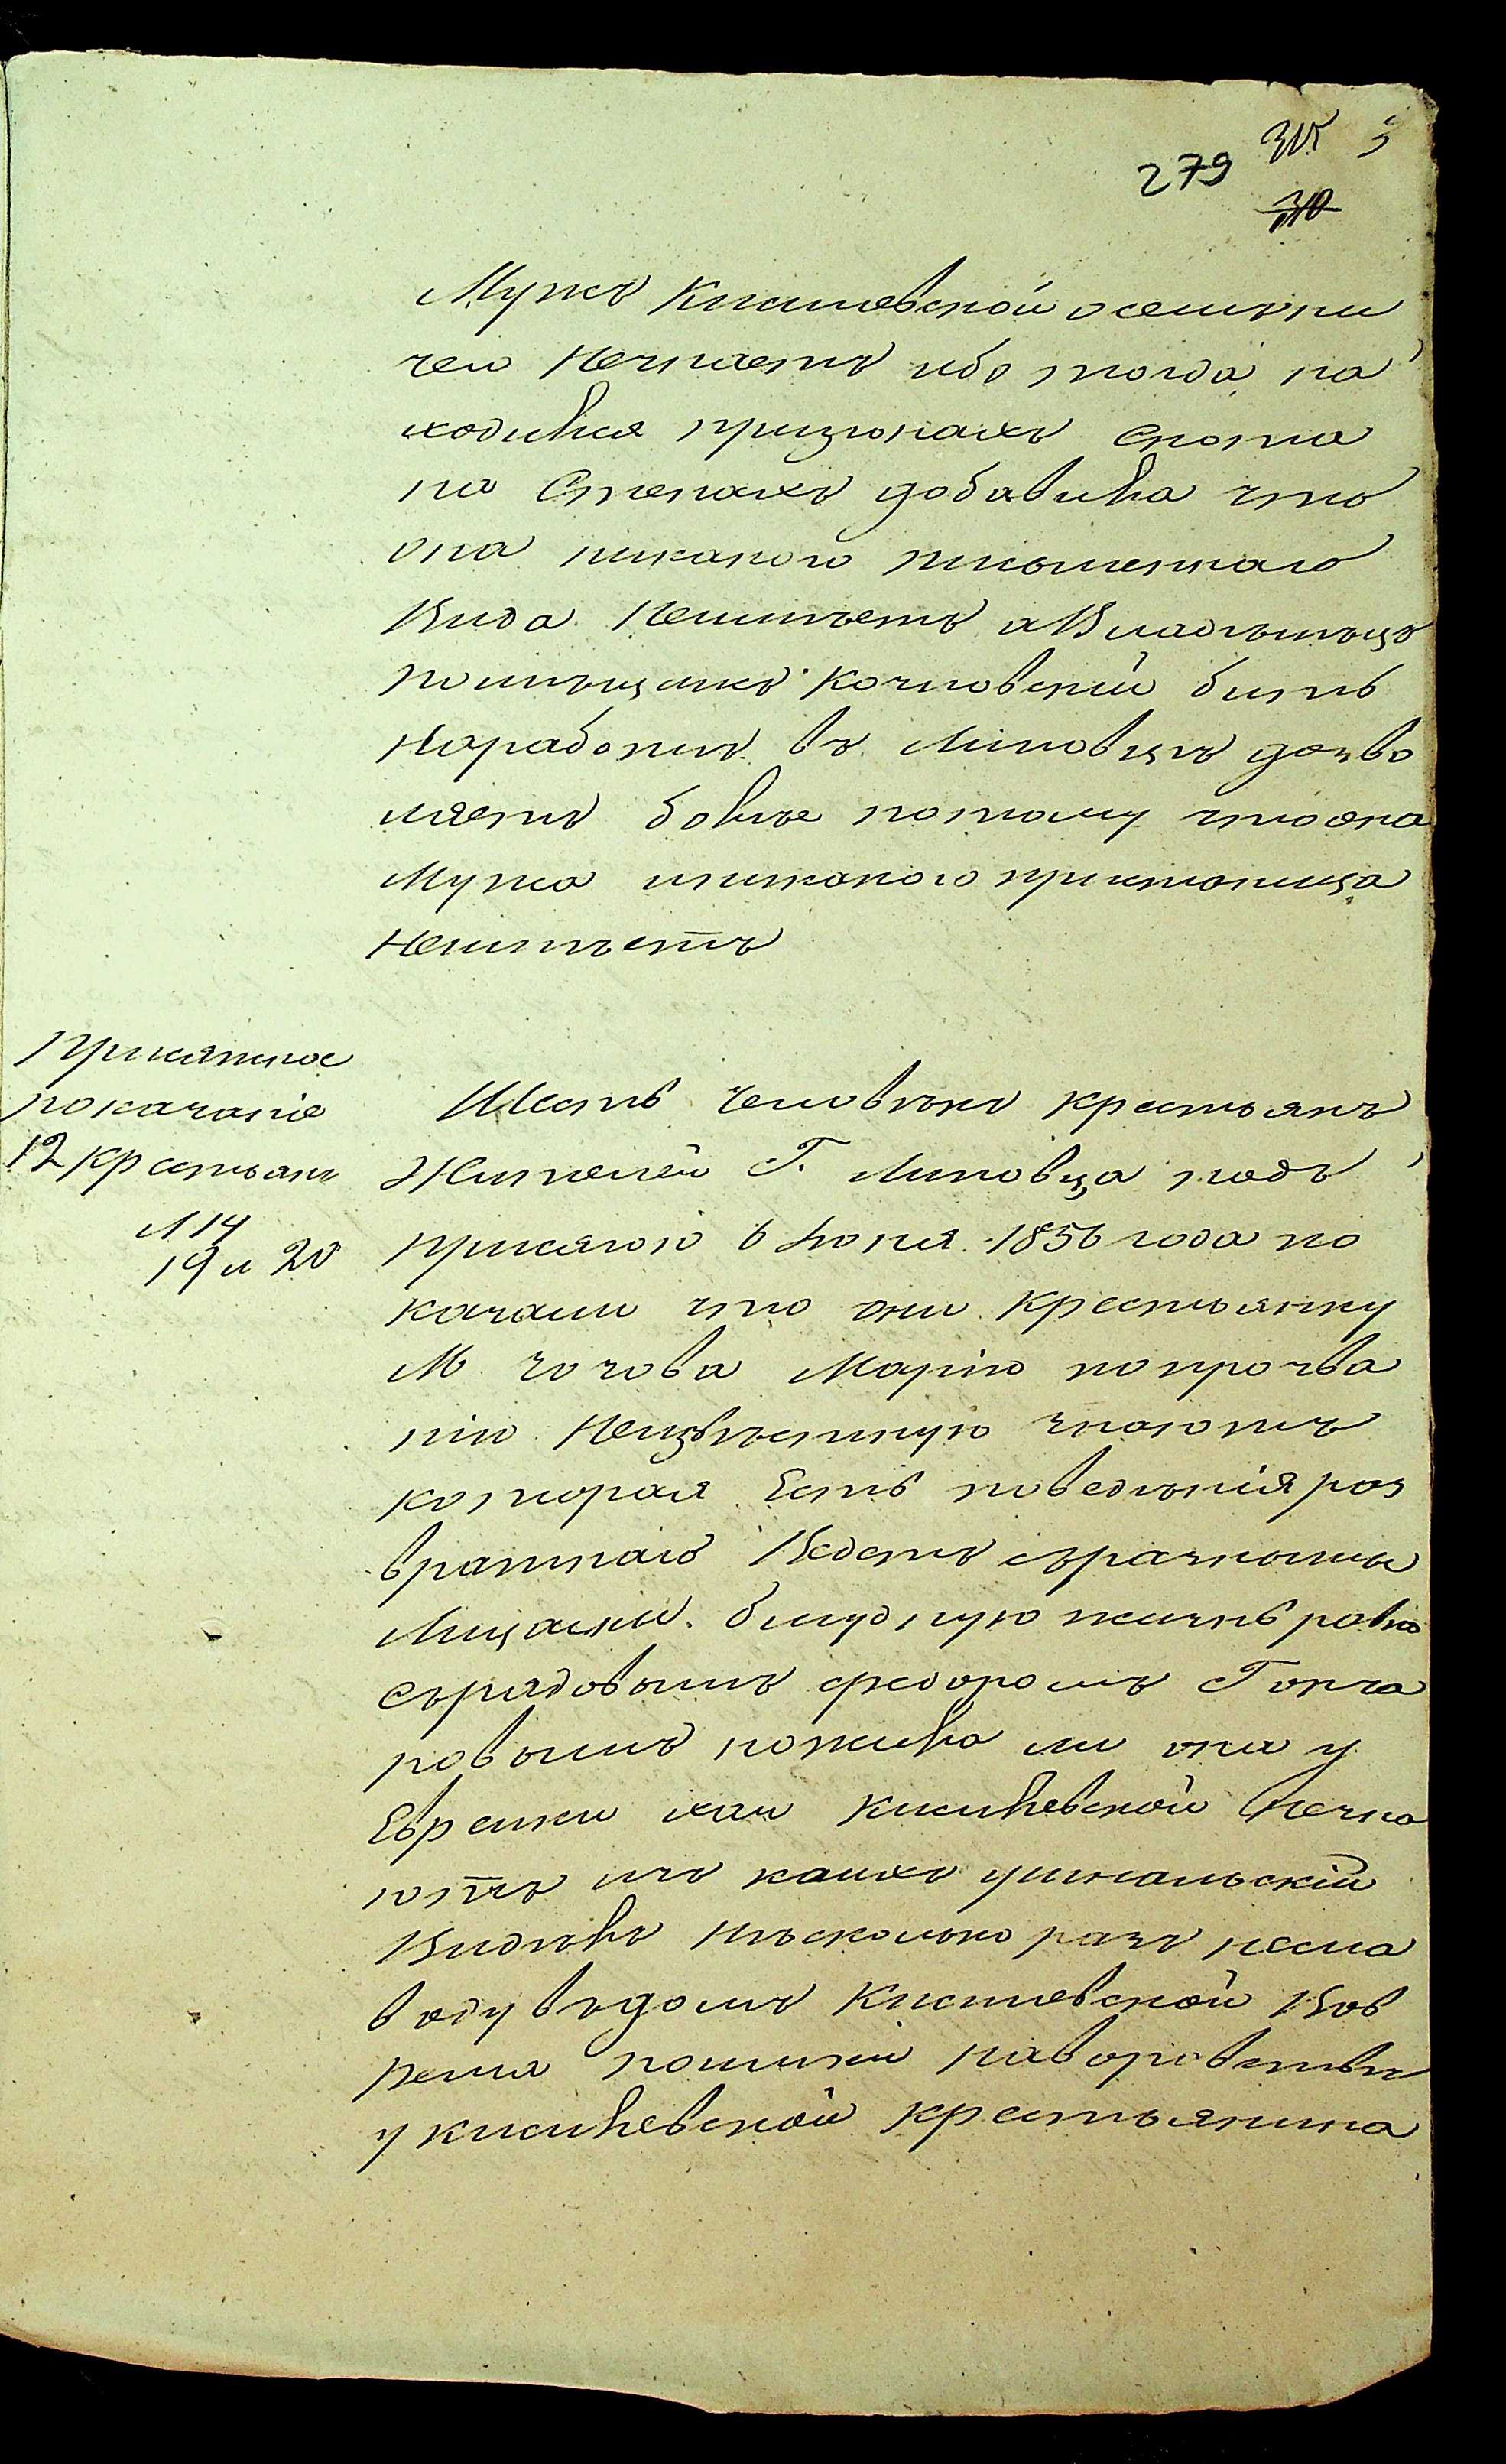 279
310
Мужъ Кисилевской осемъ ни
чего Незнаетъ ибо тогда на
ходился при гонахъ скота
на Степахъ добавила что
она никакого письменнаго
Вида Неимѣетъ а Владѣлецъ
помѣщикъ быть
Наработѣ въ Липовцѣ дозво
ляетъ болѣе потому что она
Мужа иникакого пристанища
Неимѣетъ
Присяжное
показаніе
12 крестьянъ
л 14
19 и 20
Шесть человѣкъ крестьянъ
Жителей Г. Липовца подъ
присягою 6 Іюня 1856 года по
казали что они крестьянку
М. Зозова Марію попрозва
нію Неизвѣстную знаютъ
которая Есть поведенія роз
вратнаго Ведетъ съразными
Лицами блудную жизнь равно
Сърядовымъ Федоромъ Гонча
ровымъ пожила ли она у
Еврейки хаи Кисилевской Незна
ютъ изъ каихъ уманьскій
Видѣлъ Нѣсколько разъ несла
воду въдомъ Кисилевской Вов
ремя поимки наворовствѣ
у кисилевской крестьянина